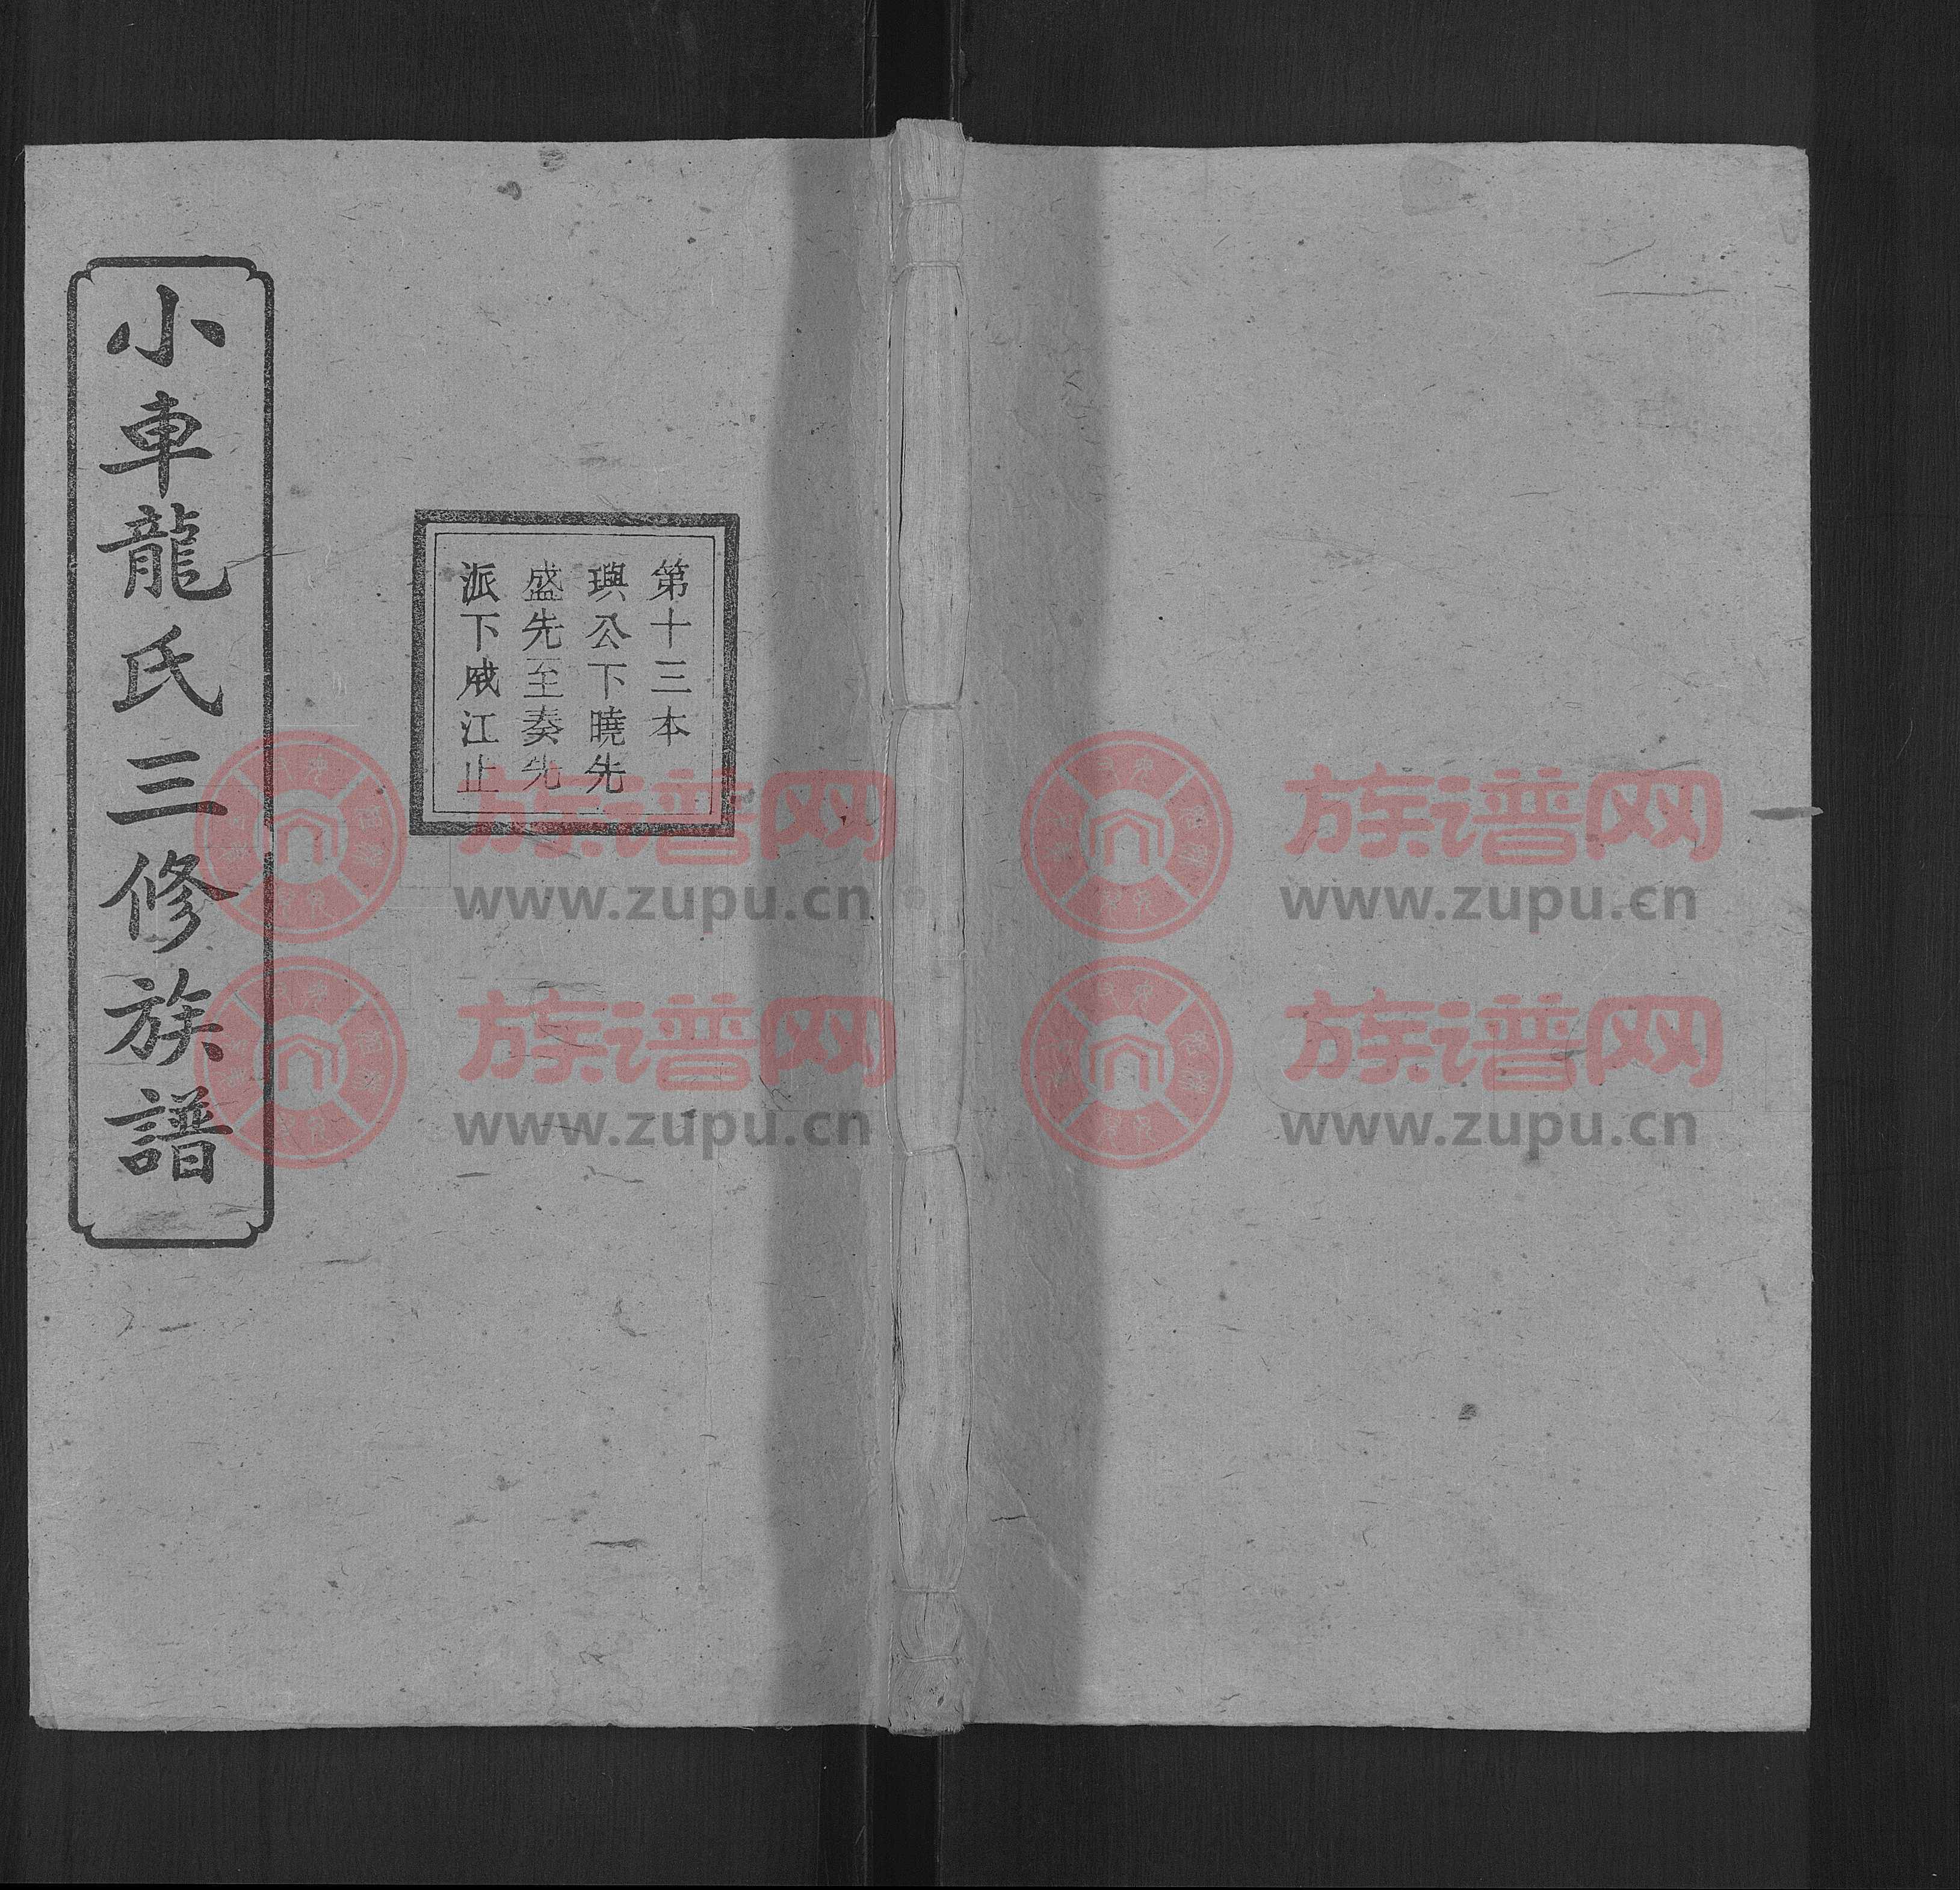 第十三本
璵公下曉先
盛先至奏先
派下成江止
小車龍氏三修族譜
族谱网
www.zupu.cn
族谱网
www.zupu.cn
族谱网
www.zupu.cn
族谱网
www.zupu.cn